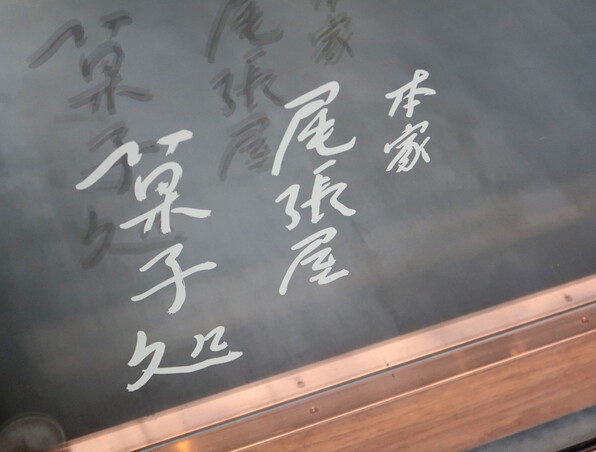 本家
尾張屋
菓子処